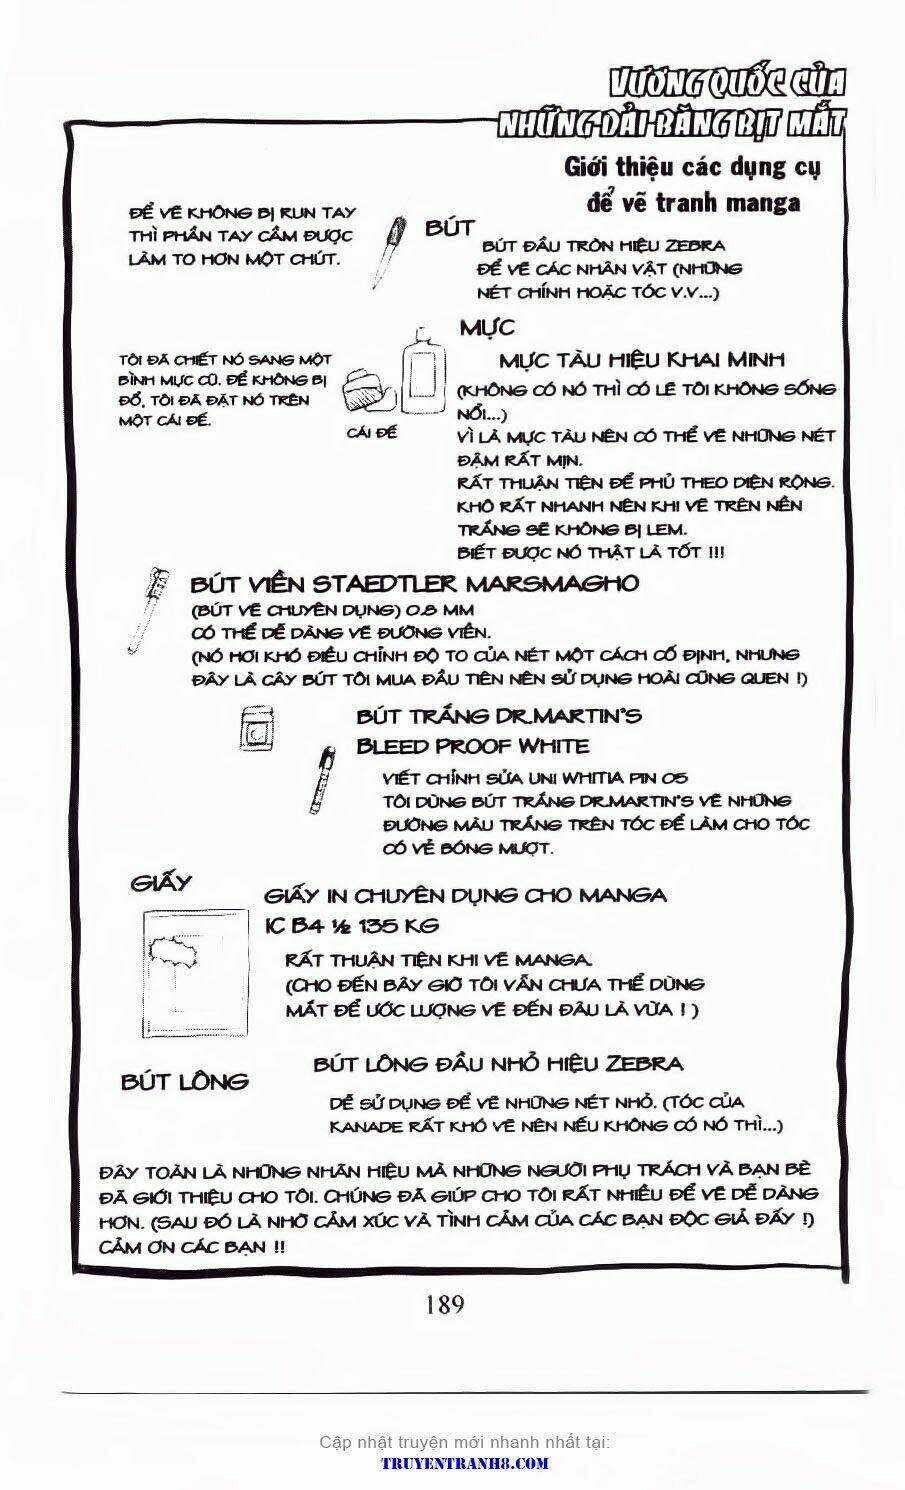 VƯƠNG QUỐC CỦA
NHỮNG DẢI BĂNG BỊT MẮT
Giới thiệu các dụng cụ
để vẽ tranh manga
ĐỂ VẼ KHÔNG BỊ RUN TAY
THÌ PHẦN TAY CẦM ĐƯỢC
LÀM TO HƠN MỘT CHÚT.
BÚT
BÚT ĐẦU TRÒN HIỆU ZEBRA
ĐỂ VẼ CÁC NHÂN VẬT (NHỮNG
NÉT CHÍNH HOẶC TÓC V.V...)
MỰC
MỰC TÀU HIỆU KHAI MINH
(KHÔNG CÓ NÓ THÌ CÓ LẼ TÔI KHÔNG SỐNG
NỔI...)
VÌ LÀ MỰC TÀU NÊN CÓ THỂ VẼ NHỮNG NÉT
ĐẬM RẤT MỊN.
RẤT THUẬN TIỆN ĐỂ PHỦ THEO DIỆN RỘNG.
KHÔ RẤT NHANH NÊN KHI VẼ TRÊN NỀN
TRẮNG SẼ KHÔNG BỊ LEM.
BIẾT ĐƯỢC NÓ THẬT LÀ TỐT !!!
TÔI ĐÃ CHIẾT NÓ SANG MỘT
BÌNH MỰC CŨ. ĐỂ KHÔNG BỊ
ĐỔ, TÔI ĐÃ ĐẶT NÓ TRÊN
MỘT CÁI ĐẾ.
CÁI ĐẾ
BÚT VIỀN STAEDTLER MARSMAGHO
(BÚT VẼ CHUYÊN DỤNG) 0.8 MM
CÓ THỂ DỄ DÀNG VẼ ĐƯỜNG VIỀN.
(NÓ HƠI KHÓ ĐIỀU CHỈNH ĐỘ TO CỦA NÉT MỘT CÁCH CỐ ĐỊNH, NHƯNG
ĐÂY LÀ CÂY BÚT TÔI MUA ĐẦU TIÊN NÊN SỬ DỤNG HOÀI CŨNG QUEN !)
BÚT TRẮNG DR.MARTIN'S
BLEED PROOF WHITE
VIẾT CHỈNH SỬA UNI WHITIA PIN 05
TÔI DÙNG BÚT TRẮNG DR.MARTIN'S VẼ NHỮNG
ĐƯỜNG MÀU TRẮNG TRÊN TÓC ĐỂ LÀM CHO TÓC
CÓ VẺ BÓNG MƯỢT.
GIẤY
GIẤY IN CHUYÊN DỤNG CHO MANGA
IC B4 ½ 135 KG
RẤT THUẬN TIỆN KHI VẼ MANGA.
(CHO ĐẾN BÂY GIỜ TÔI VẪN CHƯA THỂ DÙNG
MẮT ĐỂ ƯỚC LƯỢNG VẼ ĐẾN ĐÂU LÀ VỪA ! )
BÚT LÔNG
BÚT LÔNG ĐẦU NHỎ HIỆU ZEBRA
DỄ SỬ DỤNG ĐỂ VẼ NHỮNG NÉT NHỎ. (TÓC CỦA
KANADE RẤT KHÓ VẼ NÊN NẾU KHÔNG CÓ NÓ THÌ...)
ĐÂY TOÀN LÀ NHỮNG NHÃN HIỆU MÀ NHỮNG NGƯỜI PHỤ TRÁCH VÀ BẠN BÈ
ĐÃ GIỚI THIỆU CHO TÔI. CHÚNG ĐÃ GIÚP CHO TÔI RẤT NHIỀU ĐỂ VẼ DỄ DÀNG
HƠN. (SAU ĐÓ LÀ NHỜ CẢM XÚC VÀ TÌNH CẢM CỦA CÁC BẠN ĐỘC GIẢ ĐẤY !)
CẢM ƠN CÁC BẠN !!
189
Cập nhật truyện mới nhanh nhất tại:
TRUYENTRANH8.COM